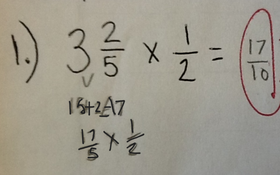 1.) 3 2/5 × 1/2 = 17/10
15+2=17
17/5 × 1/2